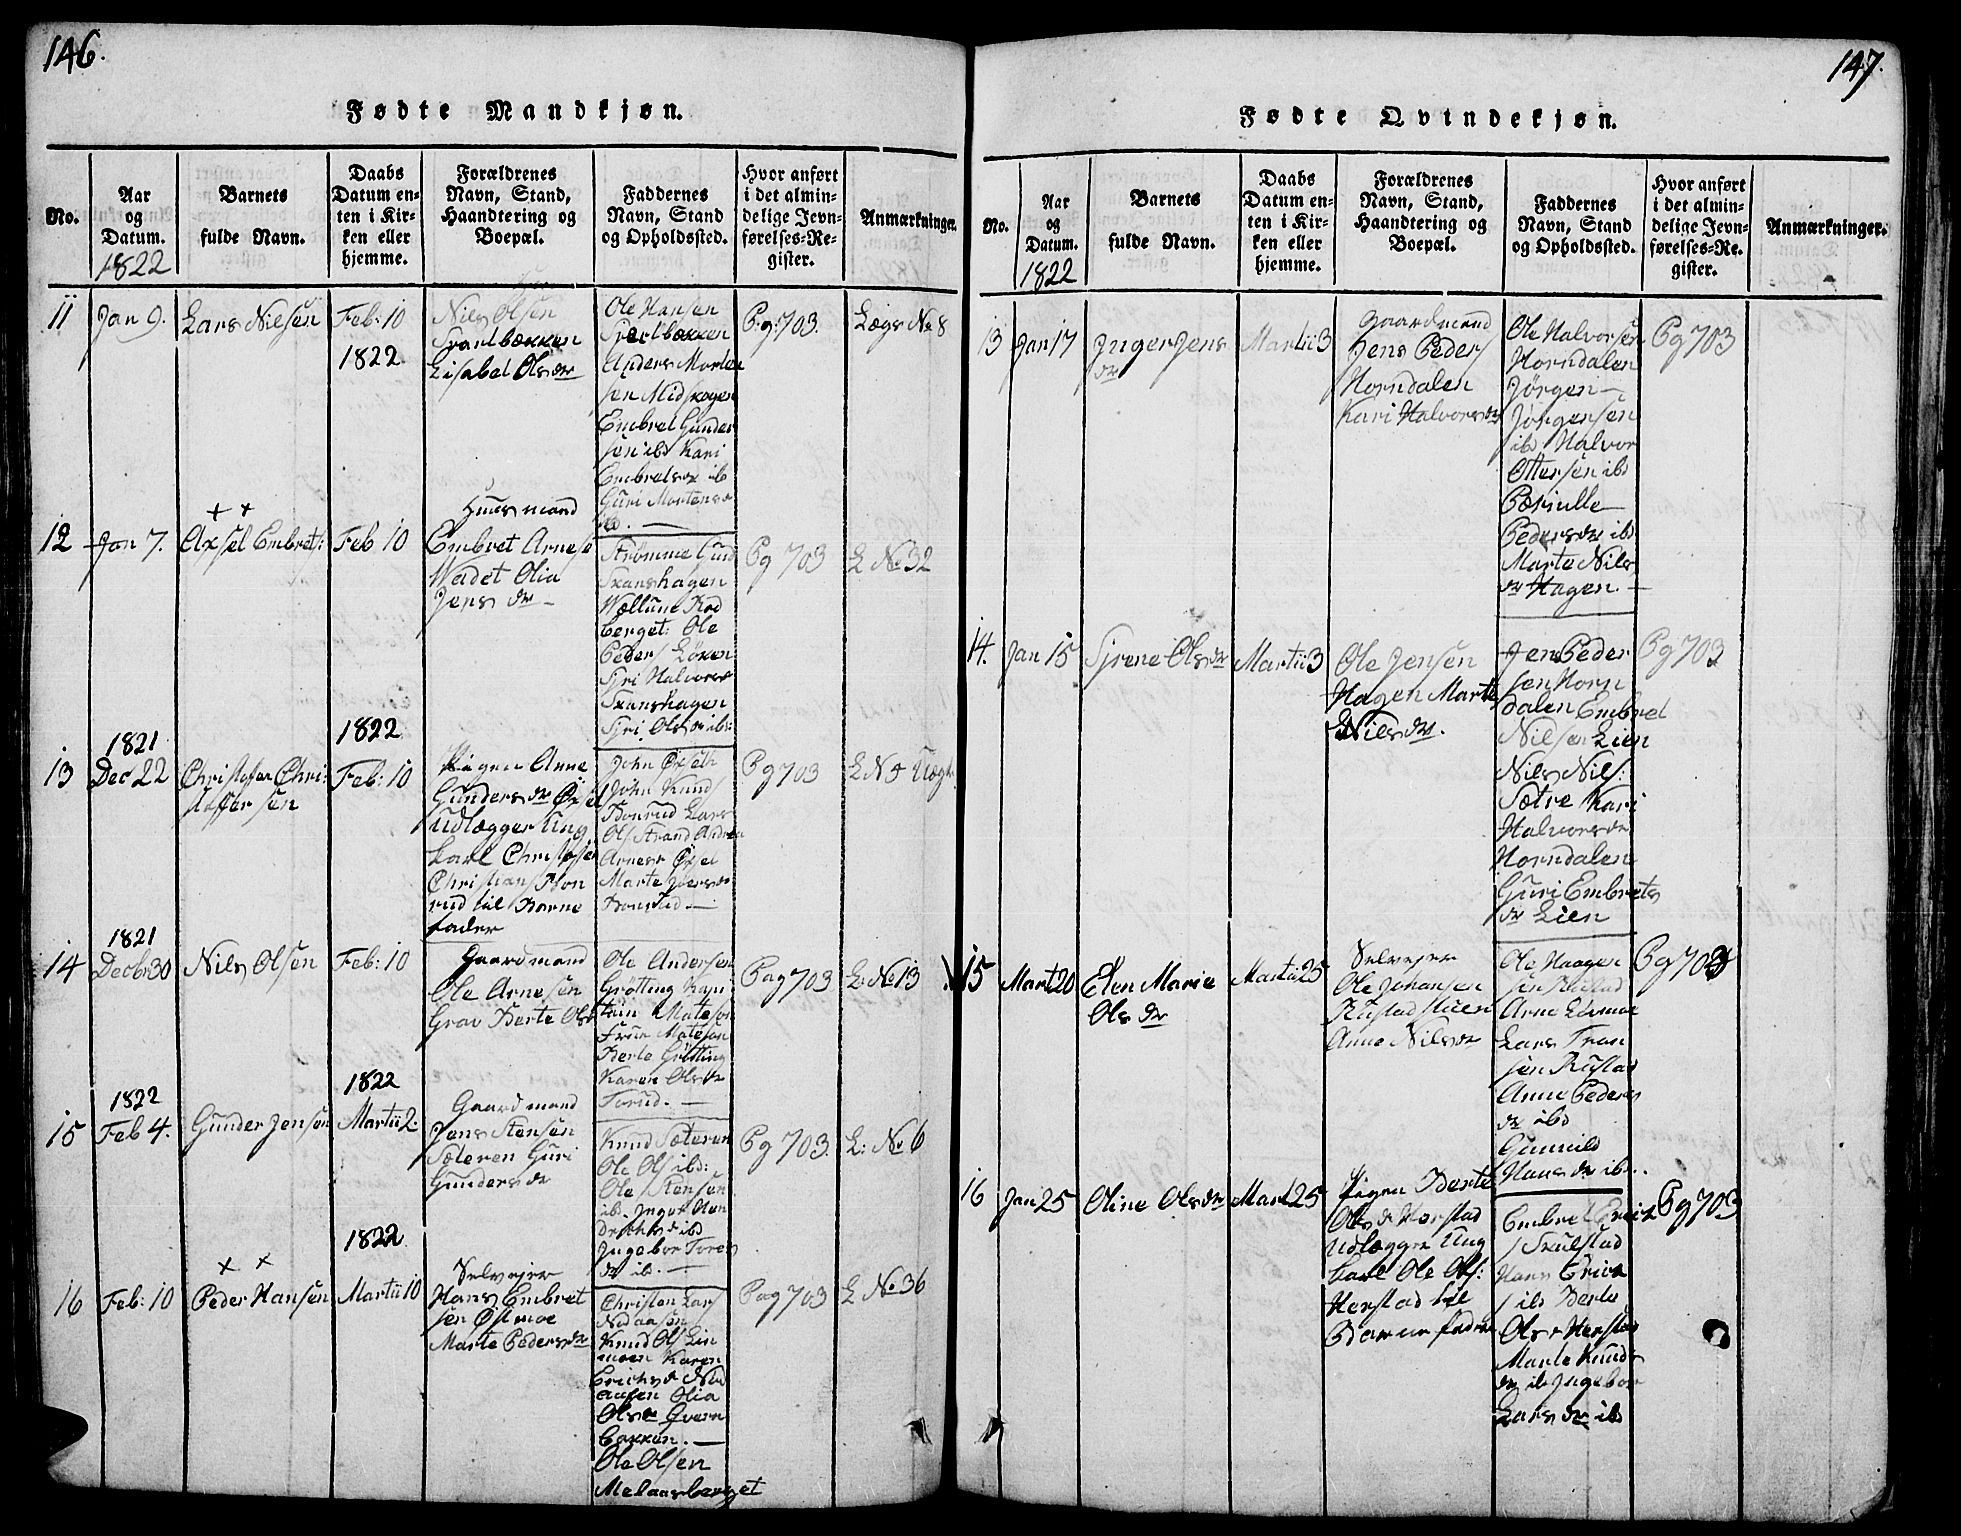 146.
Fødte Mandkjøn.
No.
Aar
og
Datum.
1822
Barnets
fulde Navn.
Daabs
Datum en-
ten i Kir-
ken eller
hjemme.
Forældrenes
Navn, Stand,
Haandtering og
Boepæl.
Faddernes
Navn, Stand
og Opholdssted.
Hvor anført
i det almin-
delige Jevn-
førelses-Re-
gister.
Anmærkninger.
11
Jan 9.
Lars Nilsen
Feb: 10
1822
Nils Olsen
Svartbækken
Lisabel Olsdr
Ole Hansen
Svartbækken
Anders Morten
sen Midskogen
Embret Gunder
sen ibd Kari
Embretsdr ib
Guri Mortensdr
ibd. —
Pg: 703.
Lægs No 8
12
Jan 7.
+ +
Axsel Embrets:
Feb 10
Huusmand
Embret Arnese
Wadet Olia
Jens dr —
Strømme Gund
Skanshagen
Wællune Rod
berget: Ole
Peders Løken
Syri Halvorsdr
Skanshagen
Syri Olsdr ib:
Pg 703
L No 32
13
1821
Dec 22
Christofer Chri:
stoffersen
1822
Feb: 10
Pigen Anne
Gundersdr Øxsel
Udlægger Ung
karl Christofer
Christians Bon
rud til Barne
fader
John Øxseth
John Knuds
Bonrud Lars
Ols Strand Andrea
Arnesr Øxsel
Marte Joersdr
Bonrud. —
Pg 703
L No 5 Uægt
14
1821
Decbr 30
Nils Olsen
Feb: 10
Gaardmand
Ole Arnesen
Grav Berte Olsd
Ole Andersen
Grøtting Kap
tain Mateson
Frue Mateson
Berte Grøtting
Karen Olsdr
Torud. —
Pag 703
L: No 13
15
1822
Feb 4.
Gunder Jensen
1822
Martii 2.
Gaardmand
Jens Stensen
Sæteren Guri
Gundersdr
Knud Sæteren
Ole Ols ibd:
Ole Stensen
ib. Inger Hen
driksd ibd
Ingebor Tores
dr ib. —
Pg 703.
L: No 6
16
Feb: 10
+ +
Peder Hansen
1822
Martii 10
Selvejer
Hans Embret
sen Østmoe
Marte Pedersdr
Christen Lars
Nidaasen
Knud Ols Lin
moen Karen
Erichsdr Nid
aasen Olia
Olsdr Qvern
bakken. —
Ole Olsen
Melaasberget
Pag 703
L No 36
147.
Fødte Qvindekjøn.
No.
Aar
og
Datum.
1822
Barnets
fulde Navn.
Daabs
Datum en-
ten i Kir-
ken eller
hjemme.
Forældrenes
Navn, Stand,
Haandtering og
Boepæl.
Faddernes
Navn, Stand
og Opholdssted.
Hvor anført
i det almin-
delige Jevn-
førelses-Re-
gister.
Anmærkninger.
13
Jan 17
Inger Jens
dr
Martii 3
Gaardmand
Jens Peders
Horndalen
Kari Halvorsdr
Ole Halvorsen
Horndalen
Jørgen —
Jørgensen
ibd Halvor
Ottersen ibd
Pærnille
Pedersdr ibd
Marte Nils
dr Hagen. —
Pg 703
14.
Jan 15
Syrene Olsdr
Martii 3
Ole Jensen
Hagen Marte
Nilsdr.
Jens Peder
sen Horn
dalen Embret
Nilsen Lien
Nils Nils:
Sætre Kari
Halvorsdr
Horndalen
Guri Embrets
dr Lien
Pg 703
15
Mart 20
Elen Marie
Olsdr
Martii 25
Selvejer
Ole Johansen
Rustadstuen
Anne Nilsdr
Ole Haagen
sen Rustad
Arne Lövmoe
Lars Tron
sen Rustad
Anne Peders
dr ibd
Gunnild
Hansdr ibd.
Pg 703
16
Jan 25
Oline Olsdr
Mart 25
Pigen Berte
Olsdr Herstad
Udlægger Ung
karl Ole Ols:
Herstad til
Barnefader
Embret Erich
s Skulstad
Hans Erich
s ibd Berte
Olsdr Herstad
Marte Knuds
dr ib Ingebor
Larsdr ibd
Pg 703